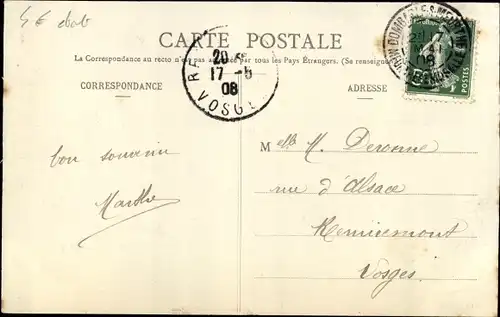 CARTE POSTALE
La Correspondance au recto n'est pas acceptée par tous les Pays Étrangers. (Se renseigner
CORRESPONDANCE
ADRESSE
20
17-5
08
VOSGES
POSTES
bon souvenir
Marthe
Melle M. Deronne
rue d'Alsace
Remiremont
Vosges.